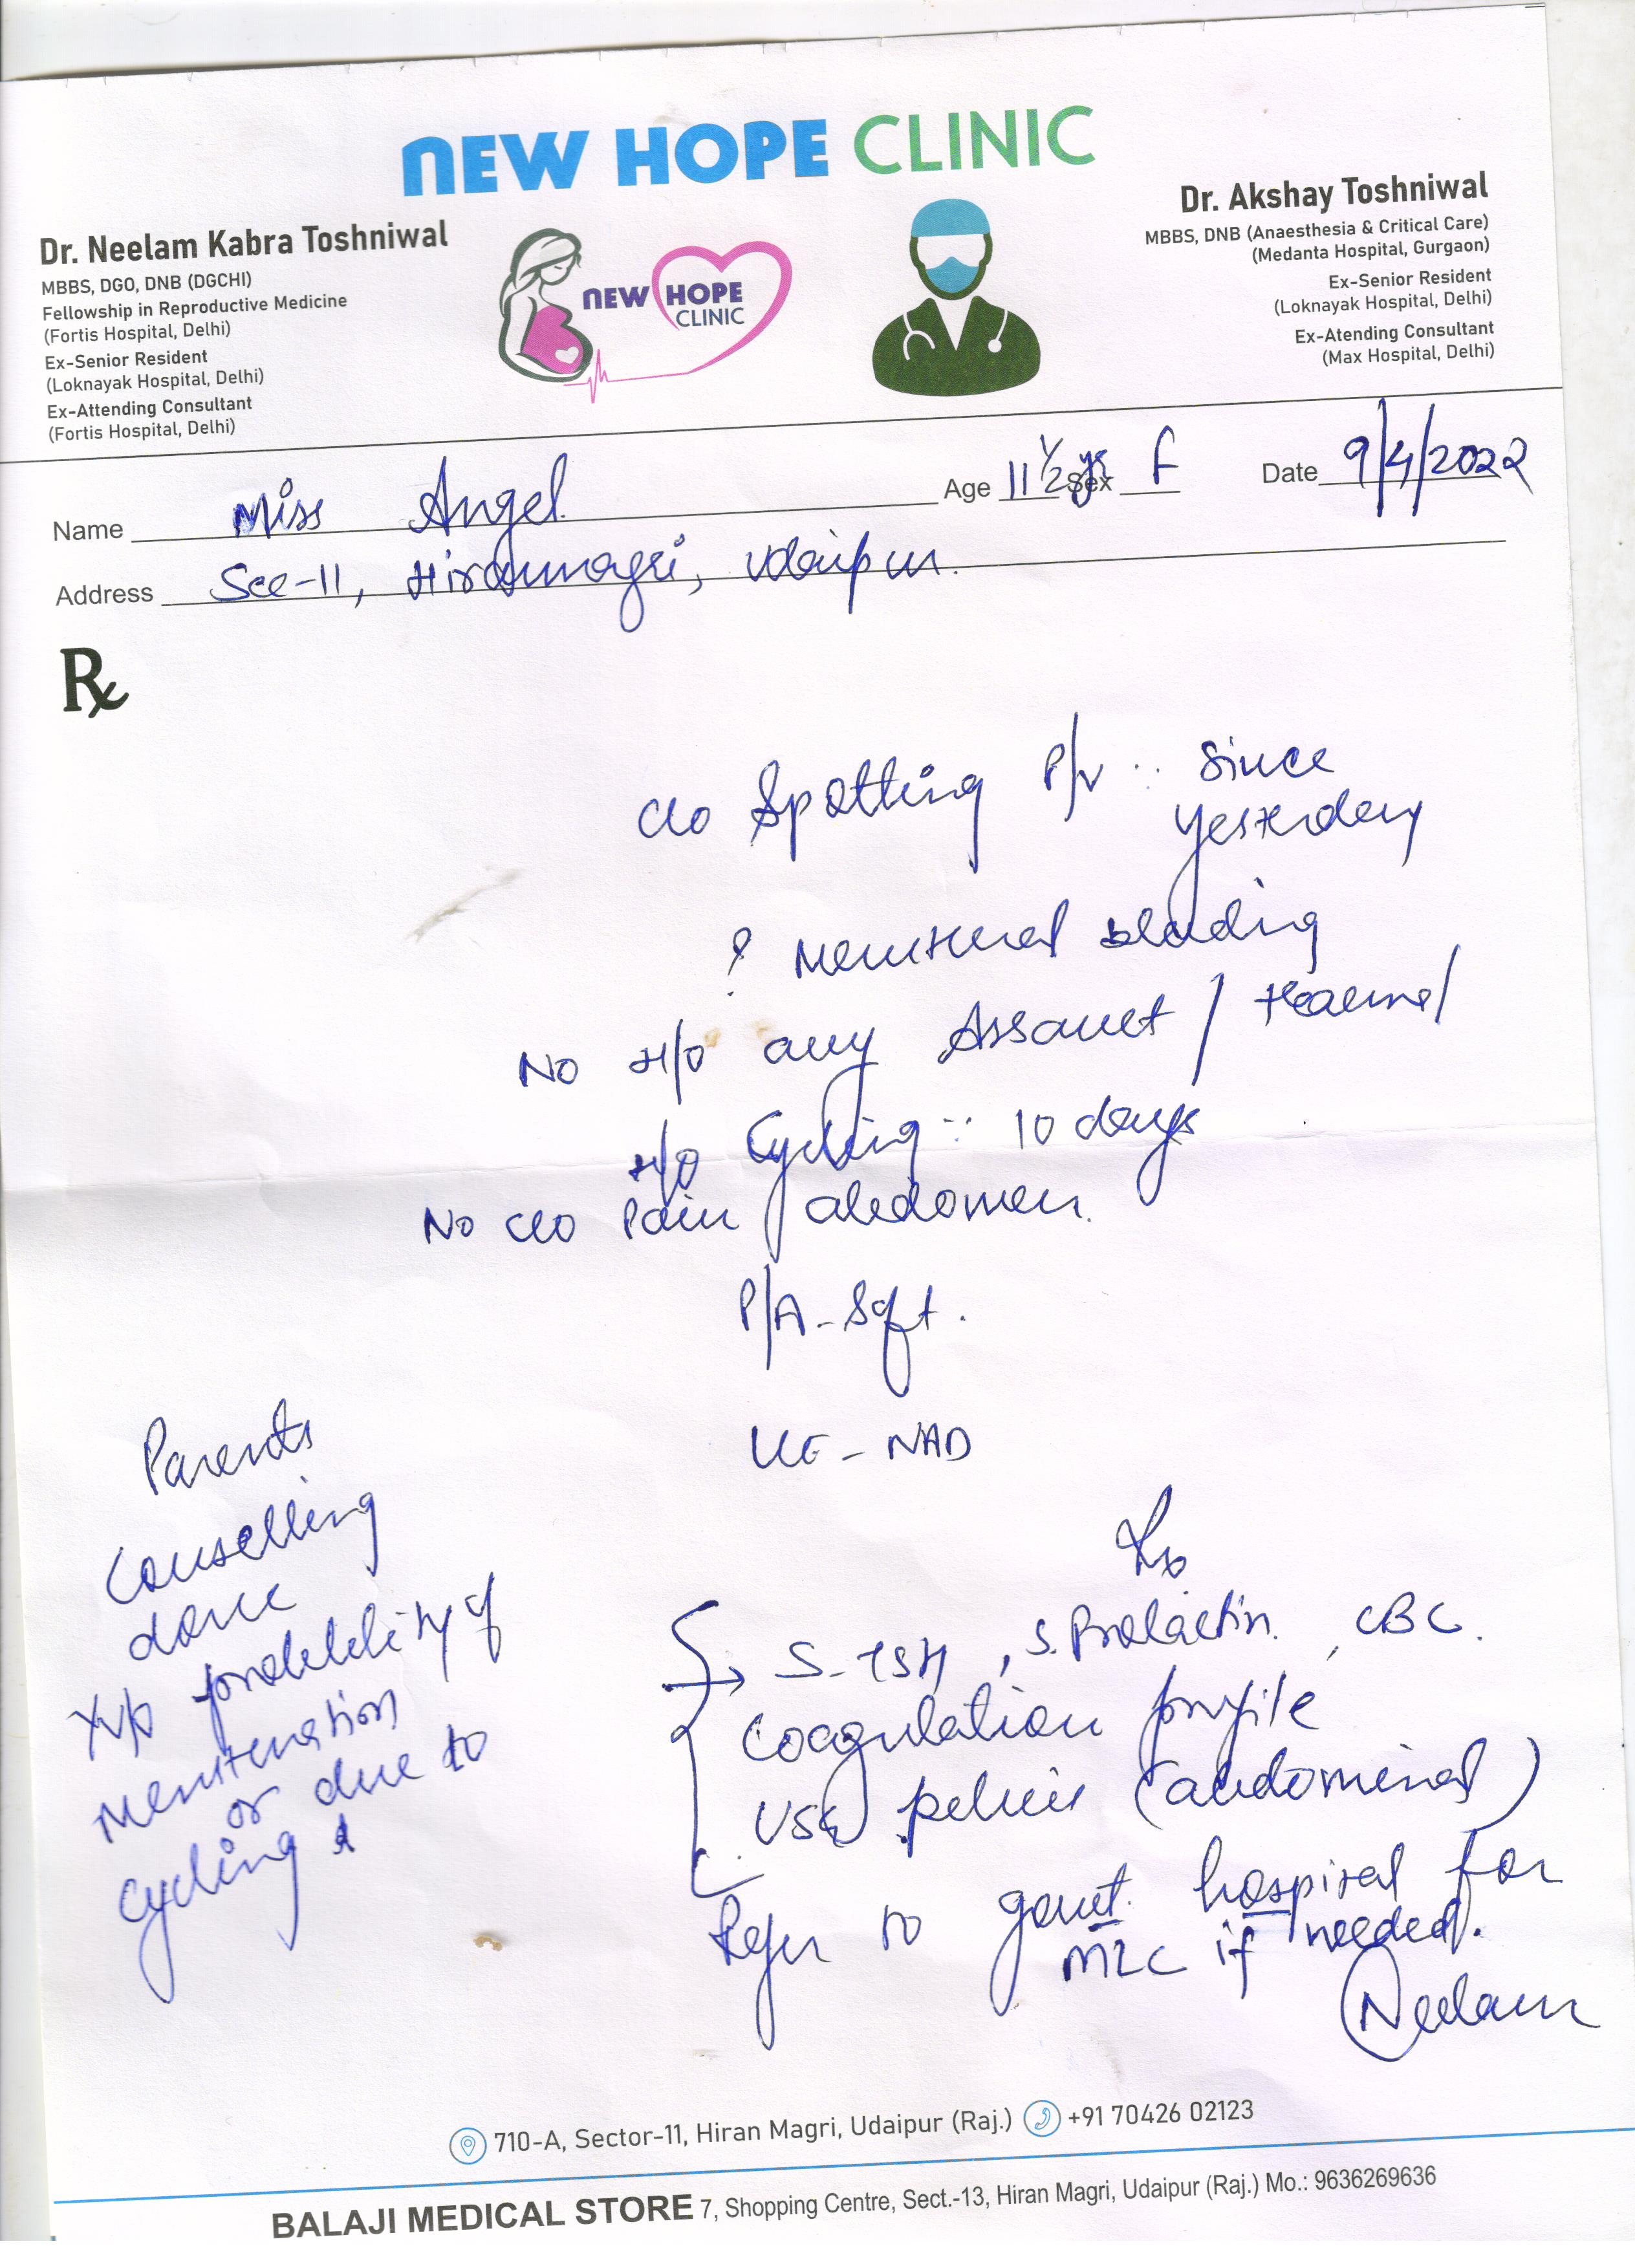 NEW HOPE CLINIC
Dr. Neelam Kabra Toshniwal
MBBS, DGO, DNB (DGCHI)
Fellowship in Reproductive Medicine
(Fortis Hospital, Delhi)
Ex-Senior Resident
(Loknayak Hospital, Delhi)
Ex-Attending Consultant
(Fortis Hospital, Delhi)
NEW HOPE
CLINIC
Dr. Akshay Toshniwal
MBBS, DNB (Anaesthesia & Critical Care)
(Medanta Hospital, Gurgaon)
Ex-Senior Resident
(Loknayak Hospital, Delhi)
Ex-Atending Consultant
(Max Hospital, Delhi)
Name Miss Angel Age 11 1/2 yrs Sex F Date 9/4/2022
Address Sec-11, Hiranmagri, Udaipur.
Rx
c/o Spotting P/v :: since
yesterday
? Menstrual bleeding
No H/o any Assault / trauma/
H/o Cycling :: 10 days
No c/o Pain abdomen.
P/A - Soft.
L/E - NAD
Parents
Counselling
done
probability of
menstruation
or due to
cycling
Rx
S-TSH, S.Prolactin, CBC.
Coagulation profile
USG pelvis (abdominal)
Refer to govt. hospital for
MLC if needed.
Neelam
710-A, Sector-11, Hiran Magri, Udaipur (Raj.) +91 70426 02123
BALAJI MEDICAL STORE 7, Shopping Centre, Sect.-13, Hiran Magri, Udaipur (Raj.) Mo.: 9636269636